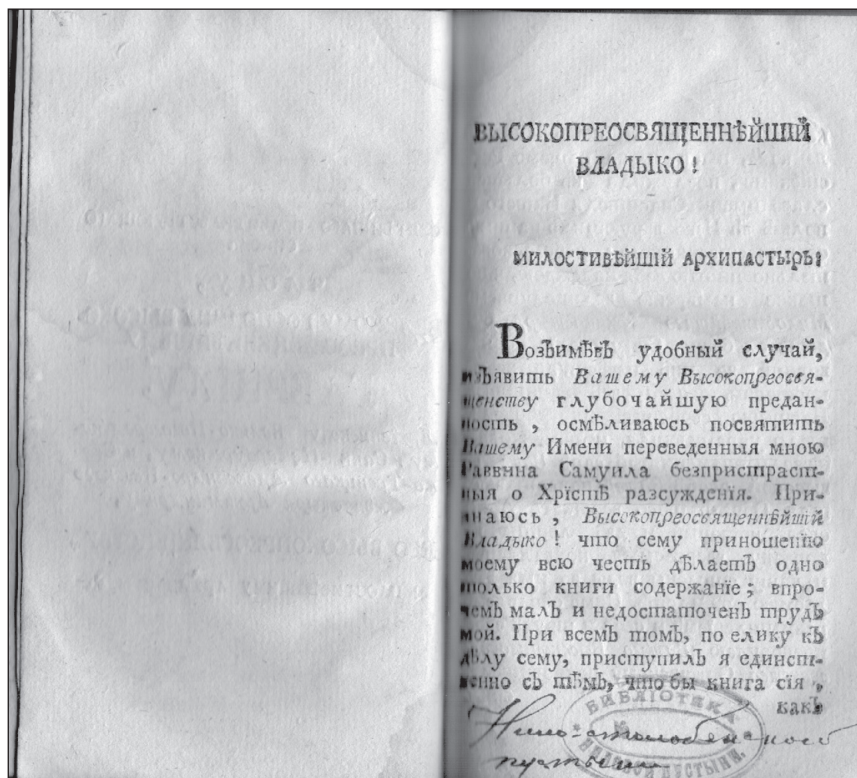 ВЫСОКОПРЕОСВЯЩЕННѢЙШІЙ
ВЛАДЫКО!
МИЛОСТИВѢЙШІЙ АРХИПАСТЫРЬ!
ВозЪимѣвЪ удобный случай,
изЪявить Вашему Высокопреосвя-
щенству глубочайшую предан-
ность, осмѣливаюсь посвятить
Вашему Имени переведенныя мною
Раввина Самуила безпристраст-
ныя о Хрїстѣ разсужденїя. При-
знаюсь, Высокопреосвященнѣйшій
Владыко! что сему приношенїю
моему всю честь дѣлаетЪ одно
только книги содержанїе; впро-
чемЪ малЪ и недостаточенЪ трудЪ
мой. При всемЪ томЪ, по елику кЪ
дѣлу сему, приступилЪ я единст-
венно сЪ тѣмЪ, что бы книга сїя,
какЪ
БИБЛІОТЕКА
НИЛОВОЙ ПУСТЫНИ.
Нило-столобенской
пустыни